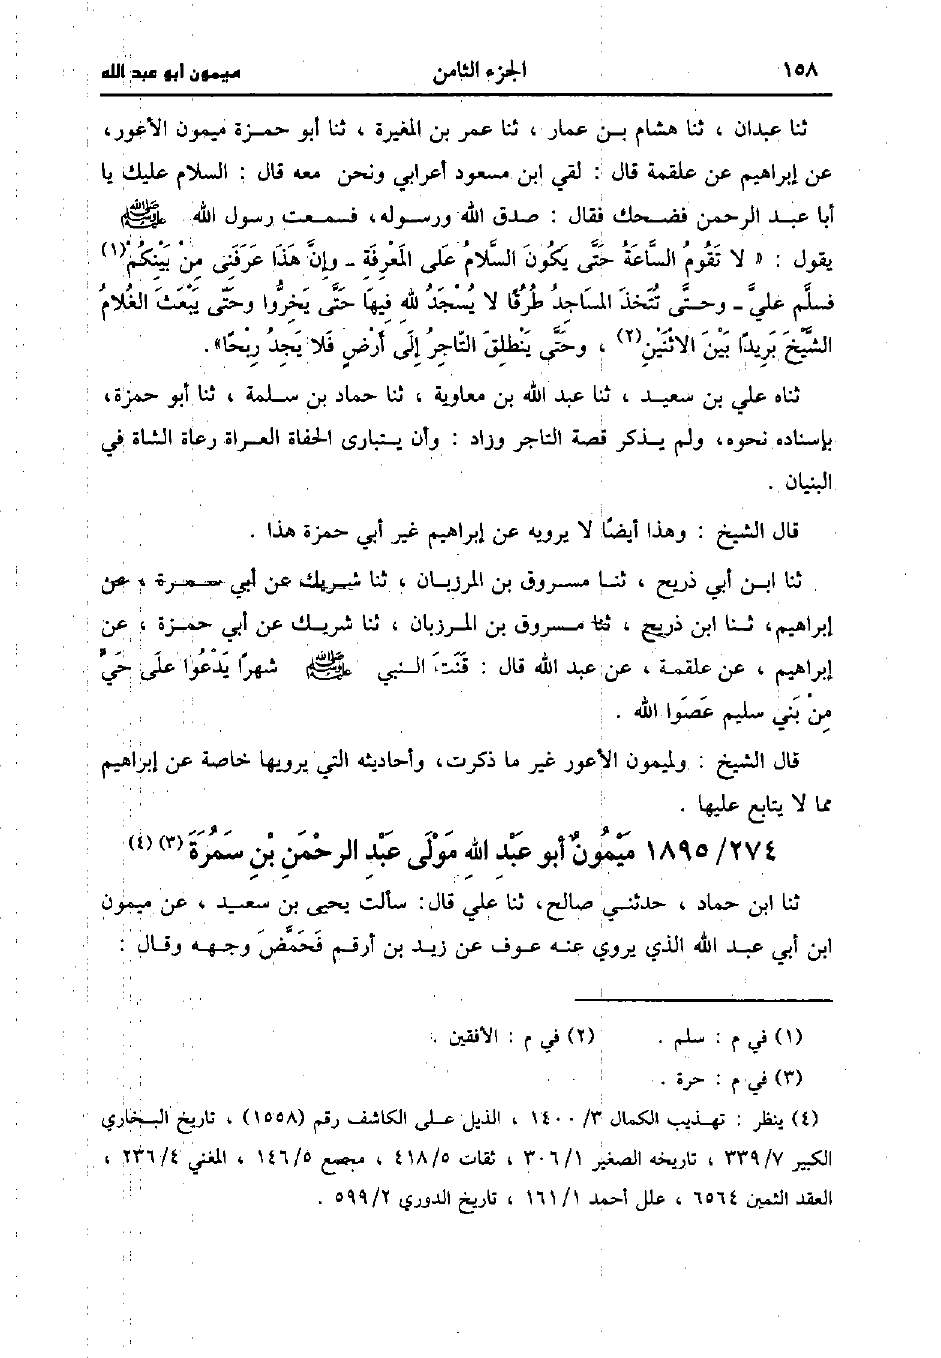 ١٥٨ الجزء الثامن ميمون ابو عبد الله
ثنا عبدان ، ثنا هشام بن عمار ، ثنا عمر بن المغيرة ، ثنا أبو حمزة ميمون الأعور،
عن إبراهيم عن علقمة قال : لقي ابن مسعود أعرابي ونحن معه قال : السلام عليك يا
أبا عبد الرحمن فضحك فقال : صدق الله ورسوله، فسمعت رسول الله ﷺ
يقول : « لا تَقُومُ السَّاعَةُ حَتَّى يَكُونَ السَّلامُ عَلى المَعْرِفَةِ - وإنَّ هَذَا عَرَفَنِى مِنْ بَيْنِكُمْ(١)
فسلَّم عليَّ - وحتَّى تُتَّخذَ المسَاجدُ طُرُقًا لا يُسْجَدُ لله فِيهَا حَتَّى يَخِرُّوا وحتَّى يَبْعَثَ الغُلامُ
الشَّيْخَ بَرِيدًا بَيْنَ الاثْنَيْنِ(٢) ، وحَتَّى يَنْطَلِقَ التَّاجِرُ إلَى أَرْضٍ فَلا يَجِدُ رِبْحًا».
ثناه علي بن سعيد ، ثنا عبد الله بن معاوية ، ثنا حماد بن سلمة ، ثنا أبو حمزة،
بإسناده نحوه، ولم يذكر قصة التاجر وزاد : وأن يتبارى الحفاة العراة رعاة الشاة في
البنيان .
قال الشيخ : وهذا أيضًا لا يرويه عن إبراهيم غير أبي حمزة هذا .
ثنا ابن أبي ذريح ، ثنا مسروق بن المرزبان ، ثنا شريك عن أبي سمرة ، عن
إبراهيم، ثنا ابن ذريح ، ثنا مسروق بن المرزبان ، ثنا شريك عن أبي حمزة ، عن
إبراهيم ، عن علقمة ، عن عبد الله قال : قَنَتَ النبي ﷺ شهرًا يَدْعُوا علَى حَيٍّ
مِنْ بَني سليم عَصَوا الله .
قال الشيخ : ولميمون الأعور غير ما ذكرت، وأحاديثه التي يرويها خاصة عن إبراهيم
مما لا يتابع عليها .
١٨٩٥/٢٧٤ مَيْمُونٌ أبو عَبْدِ الله مَوْلَى عَبْدِ الرحْمَنِ بْنِ سَمُرَةَ(٣)(٤)
ثنا ابن حماد ، حدثني صالح، ثنا علي قال: سألت يحيى بن سعيد ، عن ميمون
ابن أبي عبد الله الذي يروي عنه عوف عن زيد بن أرقم فَحَمَّضَ وجهه وقال :
(١) في م : سلم . (٢) في م : الأفقين .
(٣) في م : حرة .
(٤) ينظر : تهذيب الكمال ١٤٠٠/٣ ، الذيل على الكاشف رقم (١٥٥٨) ، تاريخ البخاري
الكبير ٣٣٩/٧ ، تاريخه الصغير ٣٠٦/١ ، ثقات ٤١٨/٥ ، مجمع ١٤٦/٥ ، المغني ٢٣٦/٤ ،
العقد الثمين ٦٥٦٤ ، علل أحمد ١٦١/١ ، تاريخ الدوري ٥٩٩/٢ .